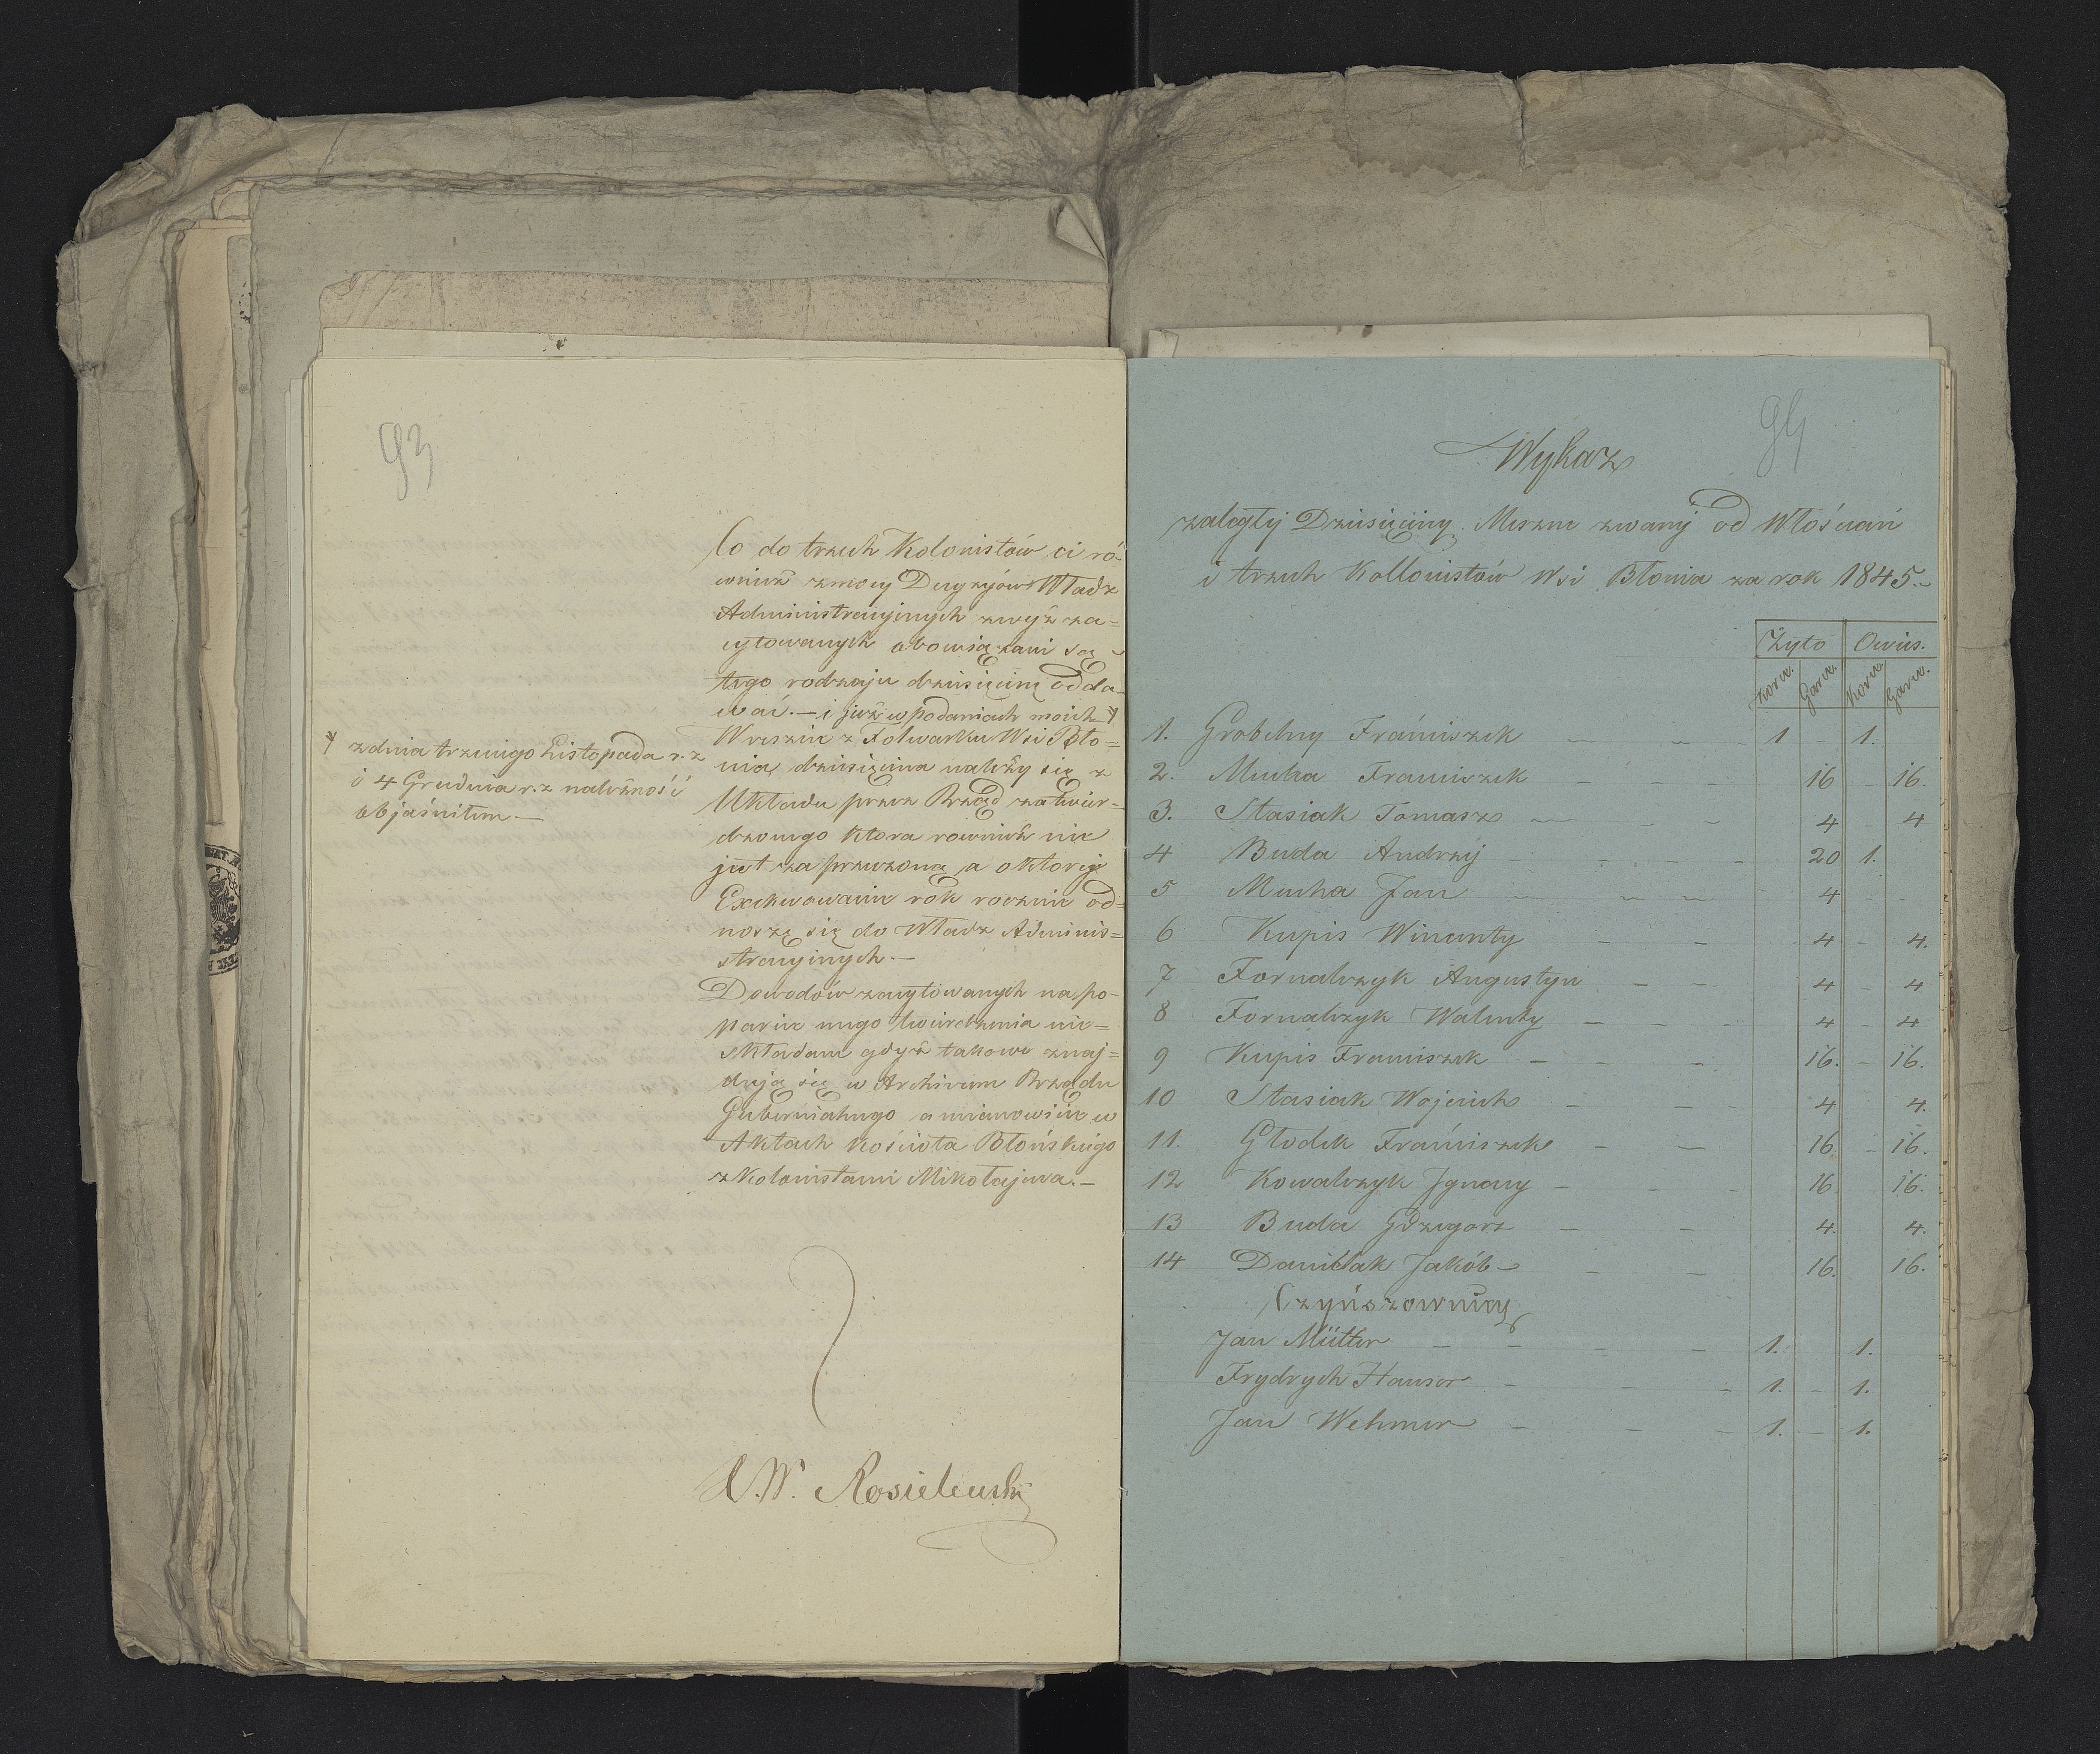 93
Co do trzech Kolonistów ci ró-
wnież zmocy Decyzyów Władz
Administracyjnych zwyż za=
cytowanych obowiązani są
tego rodzaju dziesięcinę odda-
wać. — i już w podaniach moich
Wreszcie z Folwarku Wsi Bło=
nia dziesięcina należy się z
Układu przez Rząd zatwier-
dzonego która rownież nie
jest zaprzeczoną a o którey
Exekwowanie rok rocznie od=
noszę się do Władz Adminis=
stracyjnych. —
Dowodów zacytowanych na po-
parcie mego twierdzenia nie=
składam gdyż takowe znaj=
dują się w Archivum Rządu
Gubernialnego a mianowicie w
Aktach Kościoła Błońskiego
z Kolonistami Mikołajewa. —
z dnia trzeciego Listopada r. z
i 4 Grudnia r. z należność
objaśniłem —
X. W. Kosielewski
94
Wykaz
zaległej Dziesięciny Meszne zwanej od Włościan
i trzech Kollonistów Wsi Błonia za rok 1845.
Żyto Owies.
Korce. Garce. Korce Garce.
1. Grobelny Franciszek — — — 1 — 1.
2. Mucha Franciszek — — — 16 — 16.
3. Stasiak Tomasz — — — 4 — 4
4 Buda Andrzej — — — 20 1.
5 Mucha Jan — — — 4 — —
6 Kupis Wincenty — — 4 — 4.
7 Fornalczyk Augustyn — — 4 — 4
8 Fornalczyk Walenty — — — 4 — 4
9 Kupis Franciszek — — — 16. — 16.
10 Stasiak Wojciech — — — 4 4.
11. Głodek Franciszek — — 16 — 16.
12 Kowalczyk Jgnacy — — — 16 16.
13 Buda Grzegorz — — 4. 4.
14 Danielak Jakób — — — 16. 16.
Czyńszownicy
Jan Müller — — — — 1. 1.
Frydrych Hauser — — — 1. — 1.
Jan Wehmer — — — 1. — 1.